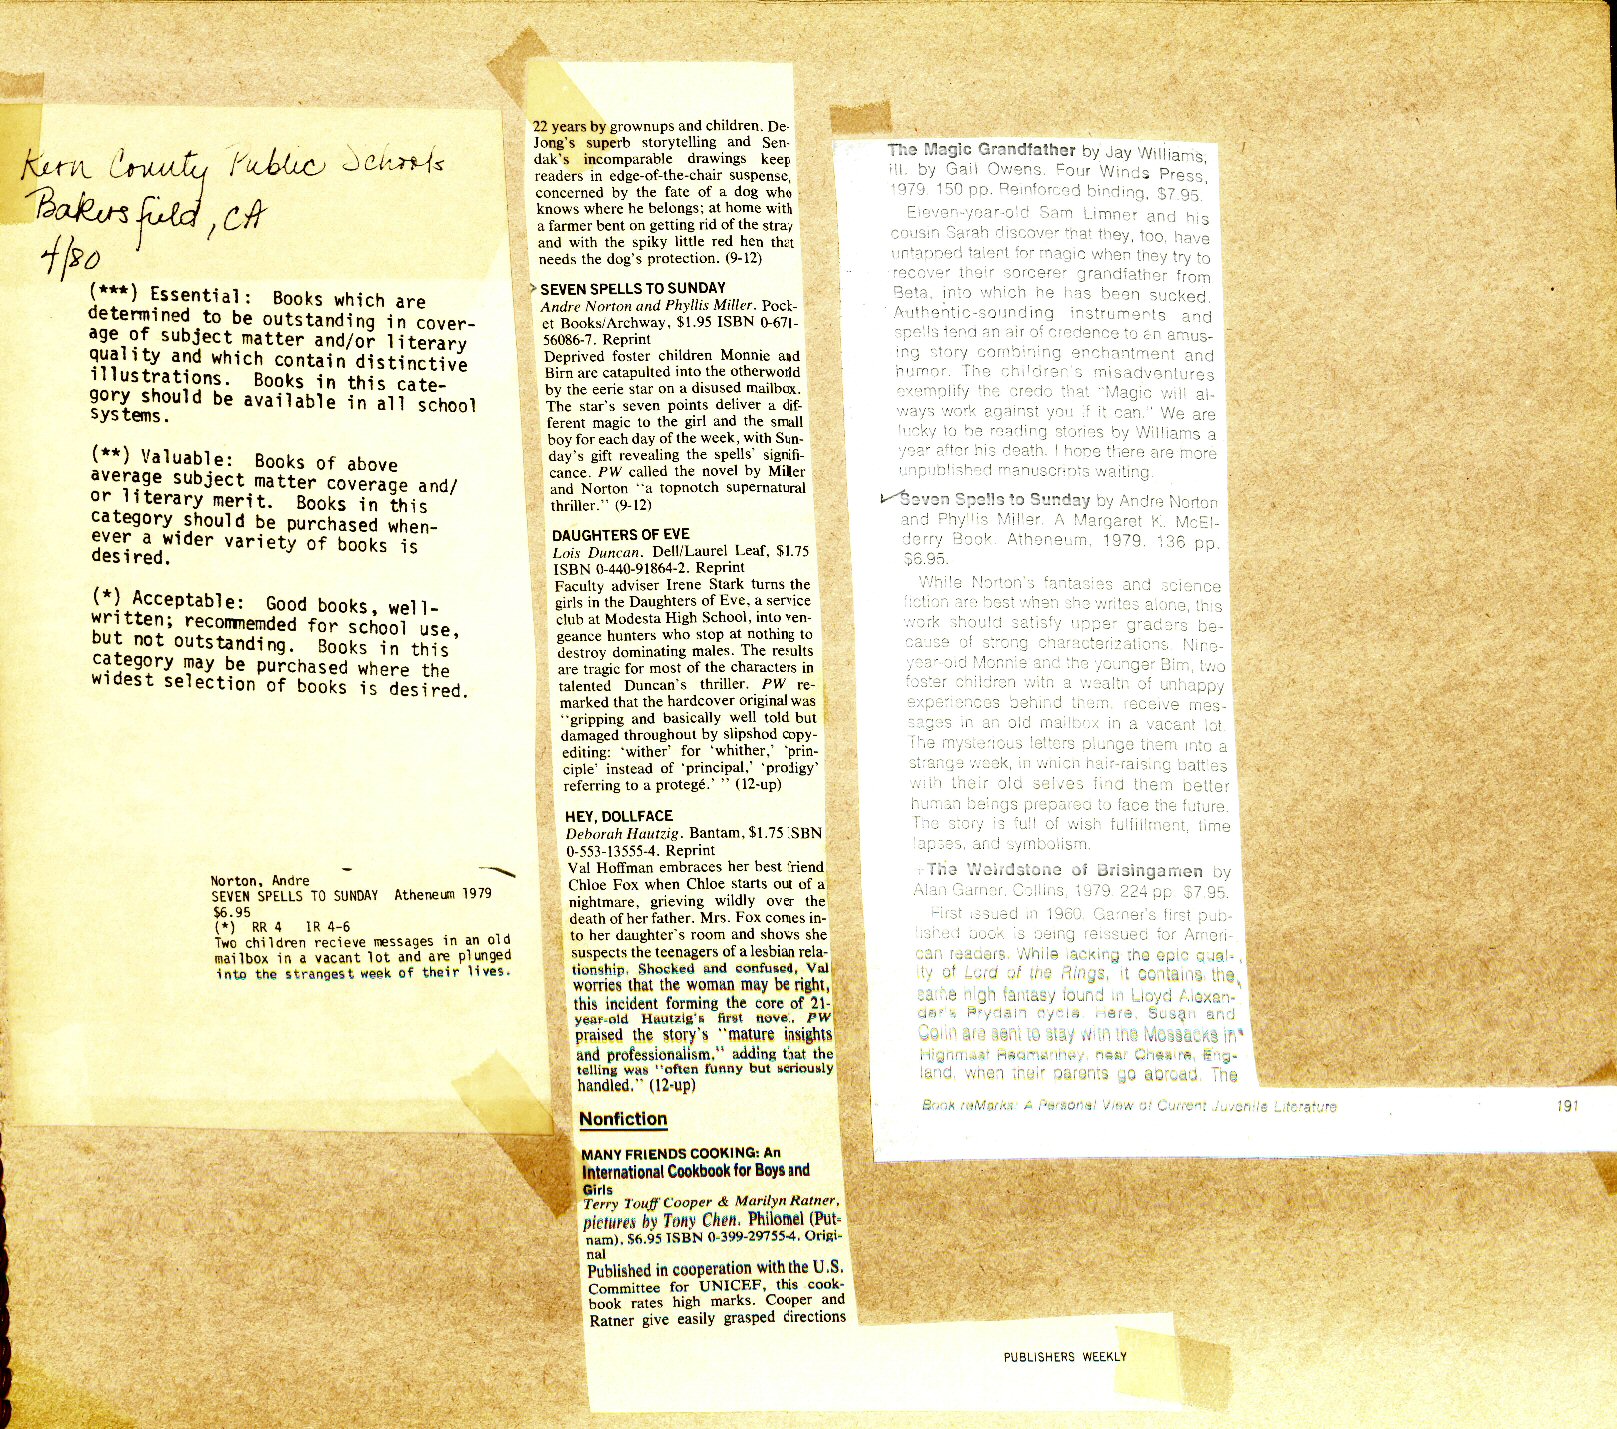 Kern County Public Schools
Bakersfield, CA
4/80
(***) Essential: Books which are
determined to be outstanding in cover-
age of subject matter and/or literary
quality and which contain distinctive
illustrations. Books in this cate-
gory should be available in all school
systems.
(**) Valuable: Books of above
average subject matter coverage and/
or literary merit. Books in this
category should be purchased when-
ever a wider variety of books is
desired.
(*) Acceptable: Good books, well-
written; recommemded for school use,
but not outstanding. Books in this
category may be purchased where the
widest selection of books is desired.
Norton, Andre
SEVEN SPELLS TO SUNDAY Atheneum 1979
$6.95
(*) RR 4 IR 4-6
Two children recieve messages in an old
mailbox in a vacant lot and are plunged
into the strangest week of their lives.
22 years by grownups and children. De-
Jong's superb storytelling and Sen-
dak's incomparable drawings keep
readers in edge-of-the-chair suspense,
concerned by the fate of a dog who
knows where he belongs; at home with
a farmer bent on getting rid of the stray
and with the spiky little red hen that
needs the dog's protection. (9-12)
SEVEN SPELLS TO SUNDAY
Andre Norton and Phyllis Miller. Pock-
et Books/Archway, $1.95 ISBN 0-671-
56086-7. Reprint
Deprived foster children Monnie and
Birn are catapulted into the otherworld
by the eerie star on a disused mailbox.
The star's seven points deliver a dif-
ferent magic to the girl and the small
boy for each day of the week, with Sun-
day's gift revealing the spells' signifi-
cance. PW called the novel by Miller
and Norton "a topnotch supernatural
thriller." (9-12)
DAUGHTERS OF EVE
Lois Duncan. Dell/Laurel Leaf, $1.75
ISBN 0-440-91864-2. Reprint
Faculty adviser Irene Stark turns the
girls in the Daughters of Eve, a service
club at Modesta High School, into ven-
geance hunters who stop at nothing to
destroy dominating males. The results
are tragic for most of the characters in
talented Duncan's thriller. PW re-
marked that the hardcover original was
"gripping and basically well told but
damaged throughout by slipshod copy-
editing: 'wither' for 'whither,' 'prin-
ciple' instead of 'principal,' 'prodigy'
referring to a protegé.' " (12-up)
HEY, DOLLFACE
Deborah Hautzig. Bantam, $1.75 ISBN
0-553-13555-4. Reprint
Val Hoffman embraces her best friend
Chloe Fox when Chloe starts out of a
nightmare, grieving wildly over the
death of her father. Mrs. Fox comes in-
to her daughter's room and shows she
suspects the teenagers of a lesbian rela-
tionship. Shocked and confused, Val
worries that the woman may be right,
this incident forming the core of 21-
year-old Hautzig's first novel. PW
praised the story's "mature insights
and professionalism," adding that the
telling was "often funny but seriously
handled." (12-up)
Nonfiction
MANY FRIENDS COOKING: An
International Cookbook for Boys and
Girls
Terry Touff Cooper & Marilyn Ratner,
pictures by Tony Chen. Philomel (Put-
nam), $6.95 ISBN 0-399-29755-4. Origi-
nal
Published in cooperation with the U.S.
Committee for UNICEF, this cook-
book rates high marks. Cooper and
Ratner give easily grasped directions
PUBLISHERS WEEKLY
The Magic Grandfather by Jay Williams,
ill. by Gail Owens. Four Winds Press,
1979. 150 pp. Reinforced binding, $7.95.
Eleven-year-old Sam Limner and his
cousin Sarah discover that they, too, have
untapped talent for magic when they try to
recover their sorcerer grandfather from
Beta, into which he has been sucked.
Authentic-sounding instruments and
spells lend an air of credence to an amus-
ing story combining enchantment and
humor. The children's misadventures
exemplify the credo that "Magic will al-
ways work against you if it can." We are
lucky to be reading stories by Williams a
year after his death. I hope there are more
unpublished manuscripts waiting.
Seven Spells to Sunday by Andre Norton
and Phyllis Miller. A Margaret K. McEl-
derry Book. Atheneum, 1979. 136 pp.
$6.95.
While Norton's fantasies and science
fiction are best when she writes alone, this
work should satisfy upper graders be-
cause of strong characterizations. Nine-
year-old Monnie and the younger Bim, two
foster children with a wealth of unhappy
experiences behind them, receive mes-
sages in an old mailbox in a vacant lot.
The mysterious letters plunge them into a
strange week, in which hair-raising battles
with their old selves find them better
human beings prepared to face the future.
The story is full of wish fulfillment, time
lapses, and symbolism.
The Weirdstone of Brisingamen by
Alan Garner. Collins, 1979. 224 pp. $7.95.
First issued in 1960, Garner's first pub-
lished book is being reissued for Ameri-
can readers. While lacking the epic qual-
ity of Lord of the Rings, it contains the
same high fantasy found in Lloyd Alexan-
der's Prydain cycle. Here, Susan and
Colin are sent to stay with the Mossacks in
Highmost Redmanhey, near Cheshire, Eng-
land, when their parents go abroad. The
Book reMarks: A Personal View of Current Juvenile Literature 191